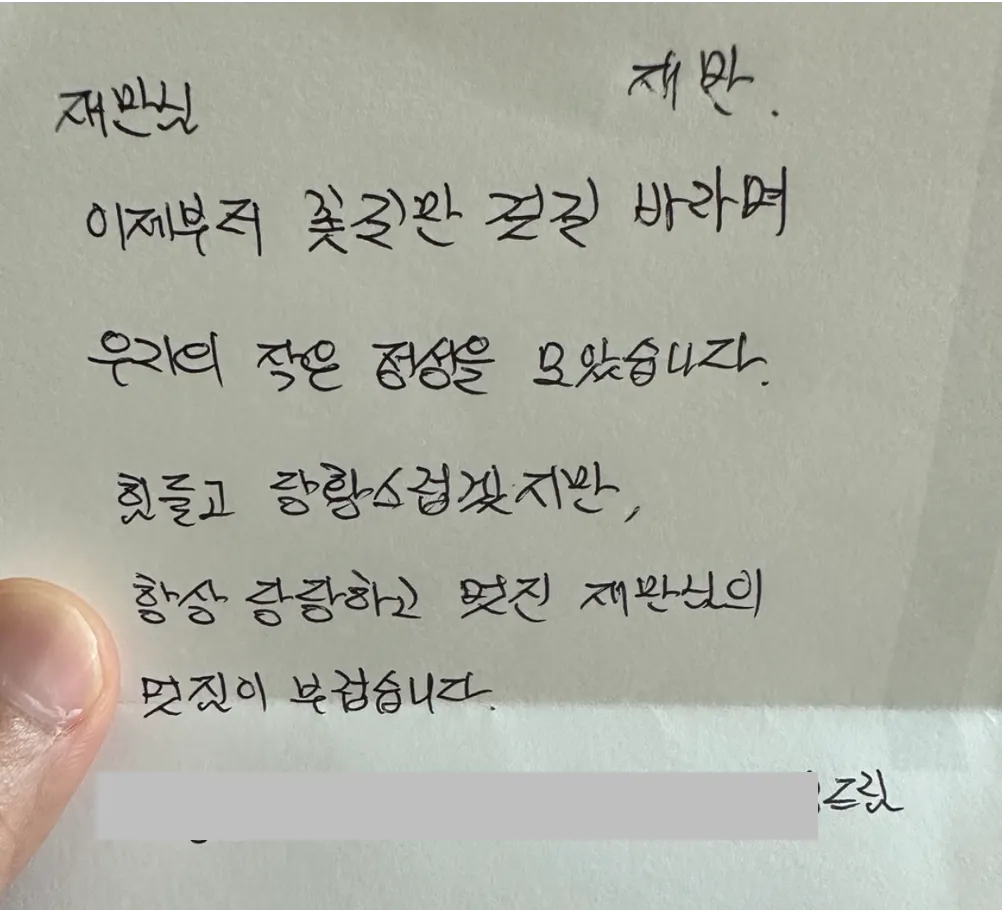 재만님 재만.
이제부터 꽃길만 걷길 바라며
우리의 작은 정성을 모았습니다.
힘들고 당황스럽겠지만,
항상 당당하고 멋진 재만님의
멋짐이 부럽습니다.
드림